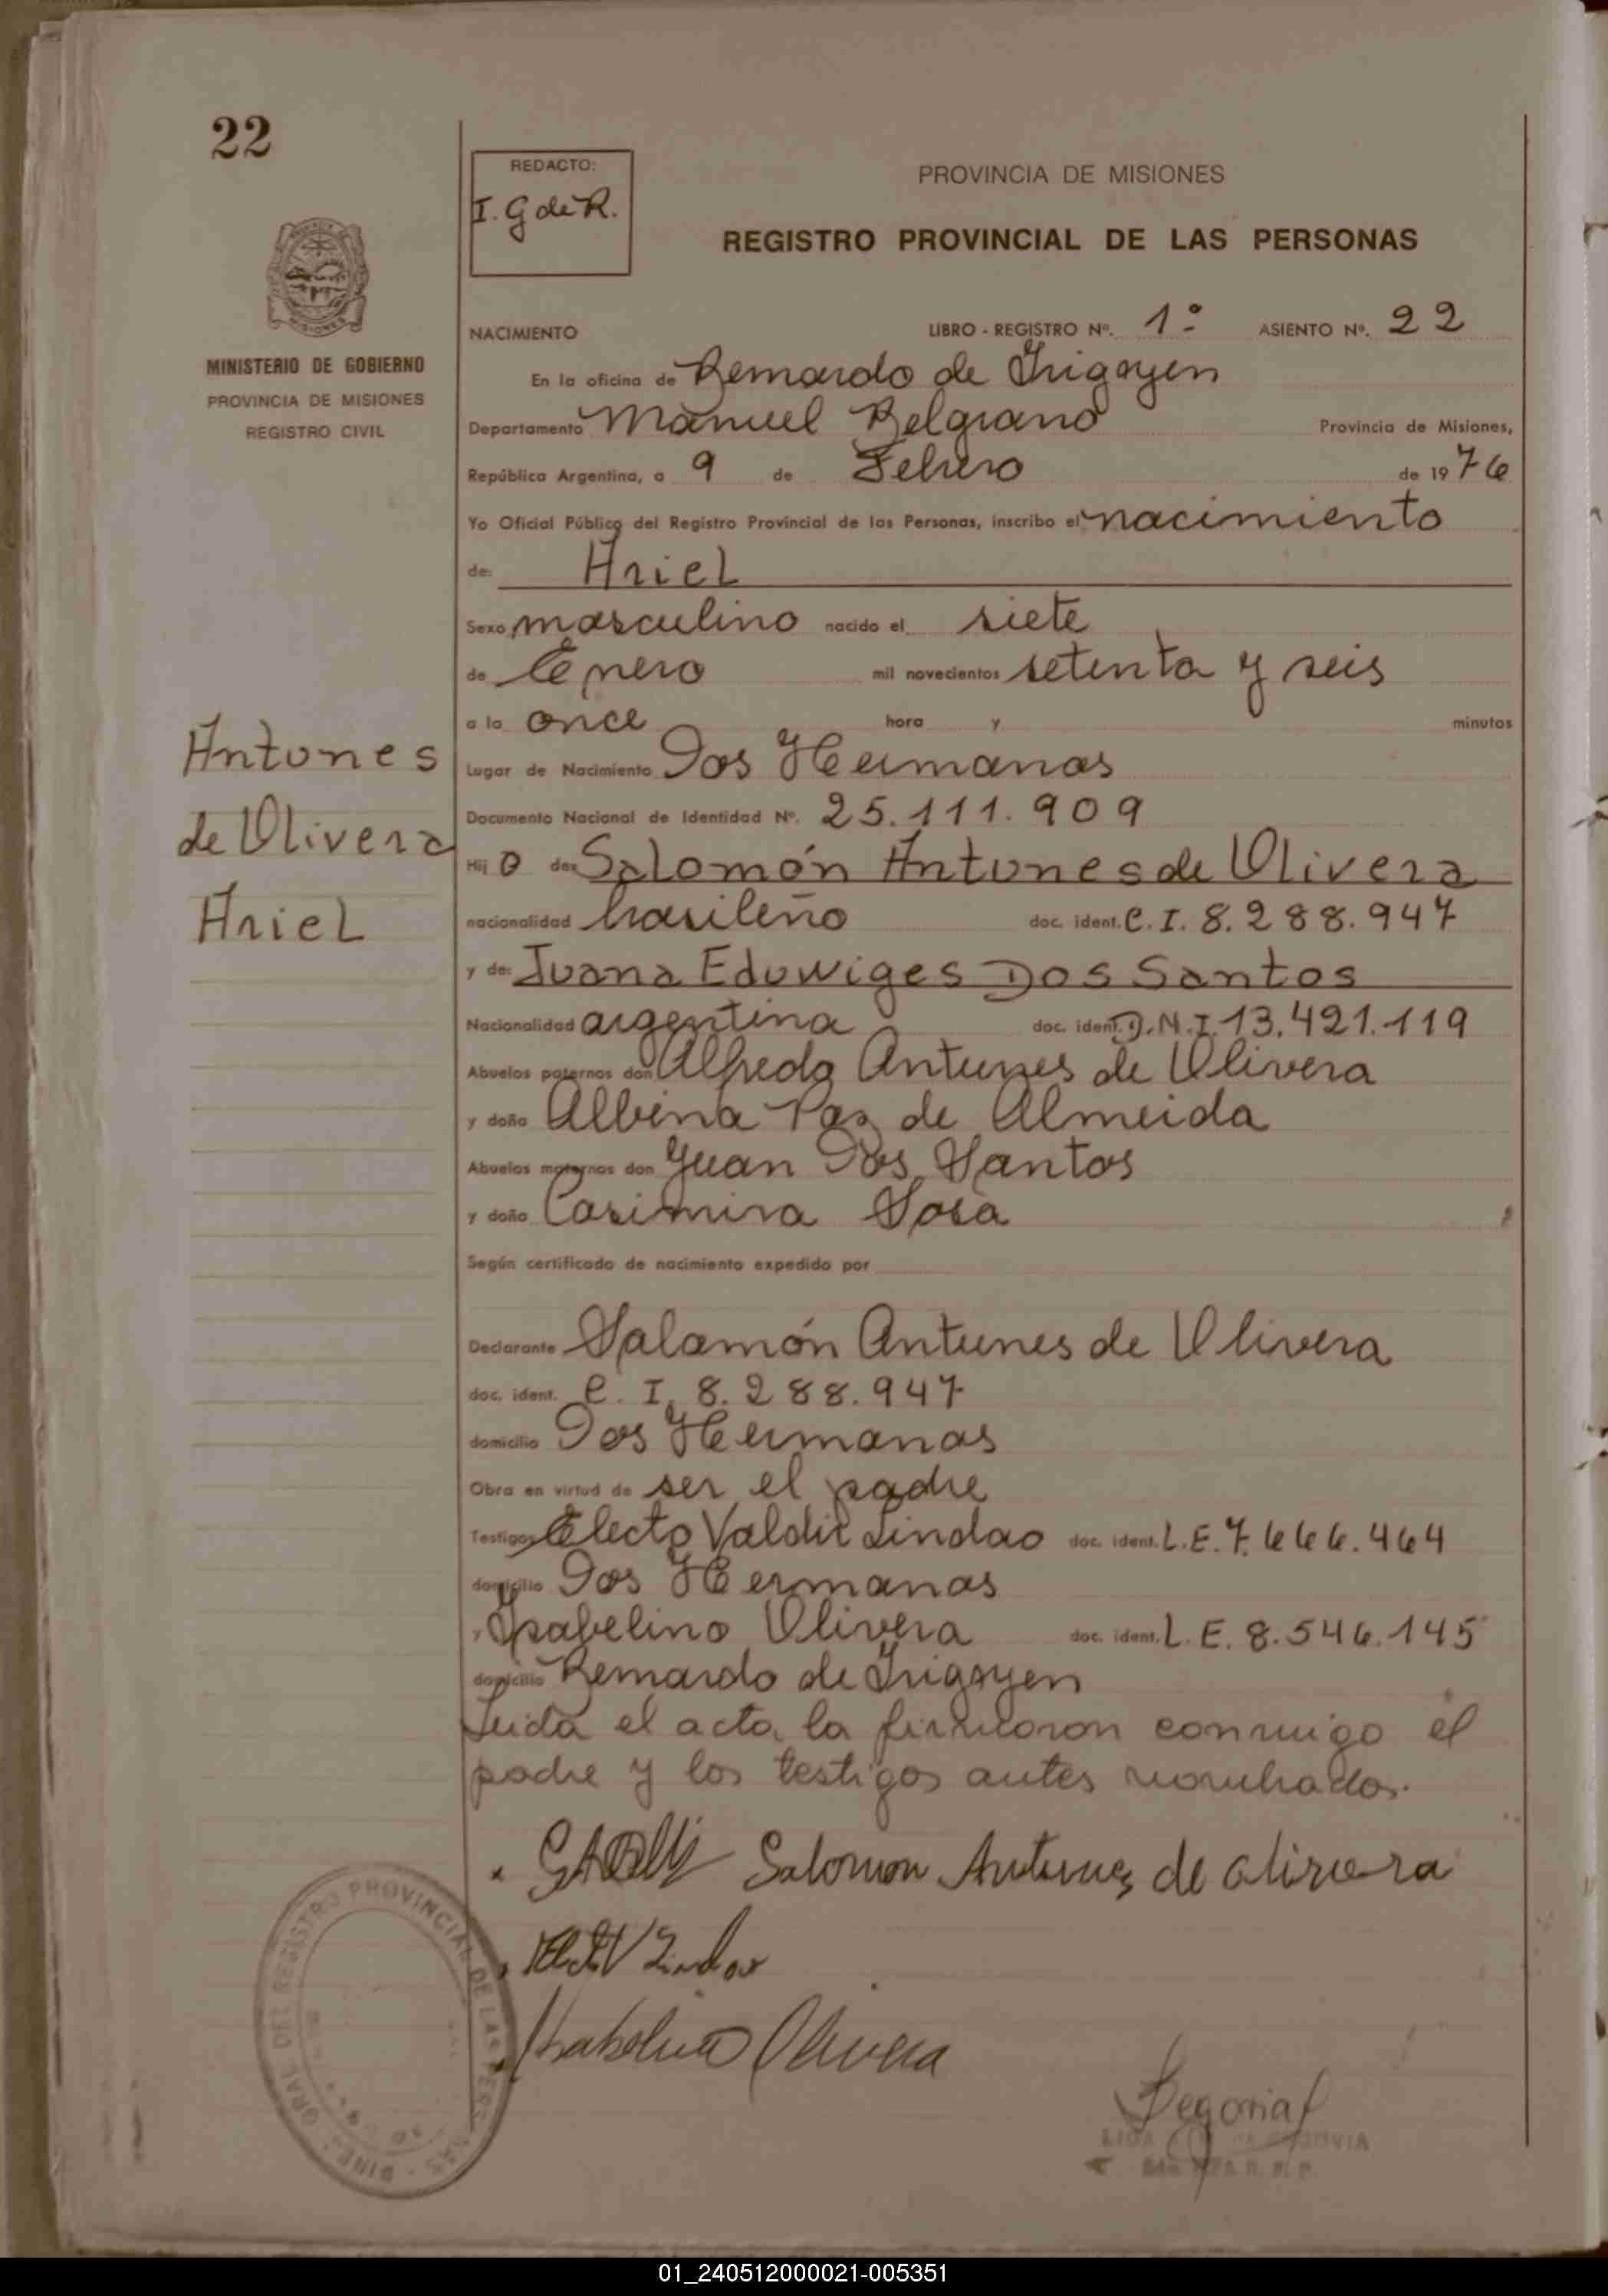 22
REDACTO:
I. G de R.
PROVINCIA DE MISIONES
REGISTRO PROVINCIAL DE LAS PERSONAS
MINISTERIO DE GOBIERNO
PROVINCIA DE MISIONES
REGISTRO CIVIL
NACIMIENTO LIBRO - REGISTRO Nº. 1º ASIENTO Nº. 22
En la oficina de Bernardo de Irigoyen
Departamento Manuel Belgrano Provincia de Misiones,
República Argentina, a 9 de Febrero de 1976
Yo Oficial Público del Registro Provincial de las Personas, inscribo el nacimiento
de: Ariel
Sexo masculino nacido el siete
de Enero mil novecientos setenta y seis
a la once hora y minutos
Antones
de Olivera
Ariel
Lugar de Nacimiento Dos Hermanas
Documento Nacional de Identidad Nº. 25.111.909
Hij o de: Salomón Antunes de Olivera
nacionalidad brasileño doc. ident. C. I. 8.288.947
y de: Juana Eduwiges Dos Santos
Nacionalidad argentina doc. ident. D.N.I. 13.421.119
Abuelos paternos don Alfredo Antunes de Olivera
y doña Albina Paz de Almeida
Abuelos maternos don Juan Dos Santos
y doña Casimira Sosa
Según certificado de nacimiento expedido por
Declarante Salamón Antunes de Olivera
doc. ident. C. I. 8.288.947
domicilio Dos Hermanas
Obra en virtud de ser el padre
Testigos Electo Valdir Lindao doc. ident. L.E. 7.666.464
domicilio Dos Hermanas
y Ysabelino Olivera doc. ident. L.E. 8.546.145
domicilio Bernardo de Irigoyen
Leida el acta, la firmaron conmigo el
padre y los testigos antes nombrados.
Salomon Antunes de olivera
Elect V Lindao
Isabelino Olivera
DIREC. GRAL. DEL REGISTRO PROVINCIAL DE LAS PERSONAS
Segovia
01_240512000021-005351